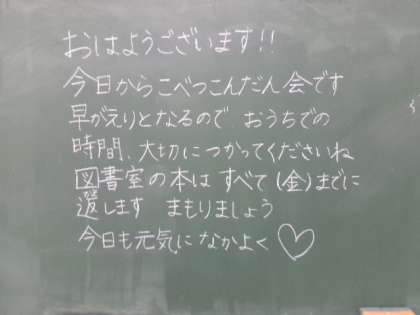 おはようございます!!
今日からこべつこんだん会です
早がえりとなるので おうちでの
時間、大切につかってくださいね
図書室の本は すべて(金)までに
還します まもりましょう
今日も元気になかよく♡